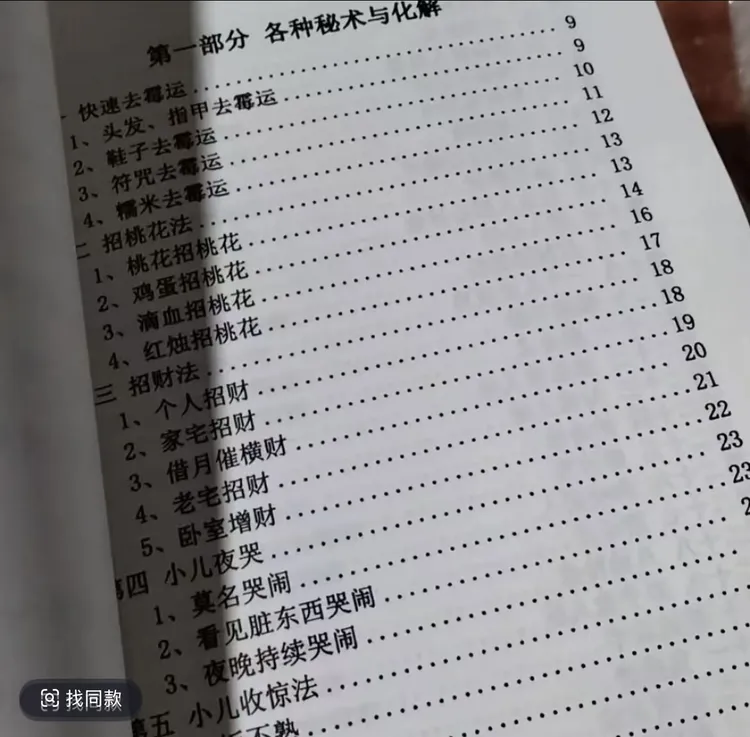 第一部分 各种秘术与化解
一 快速去霉运..........9
1、头发、指甲去霉运..........9
2、鞋子去霉运..........10
3、符咒去霉运..........11
4、糯米去霉运..........12
二 招桃花法..........13
1、桃花招桃花..........13
2、鸡蛋招桃花..........14
3、滴血招桃花..........16
4、红烛招桃花..........17
三 招财法..........18
1、个人招财..........18
2、家宅招财..........19
3、借月催横财..........20
4、老宅招财..........21
5、卧室增财..........22
第四 小儿夜哭..........23
1、莫名哭闹..........23
2、看见脏东西哭闹..........2
3、夜晚持续哭闹..........
第五 小儿收惊法..........
不熟..........
找同款